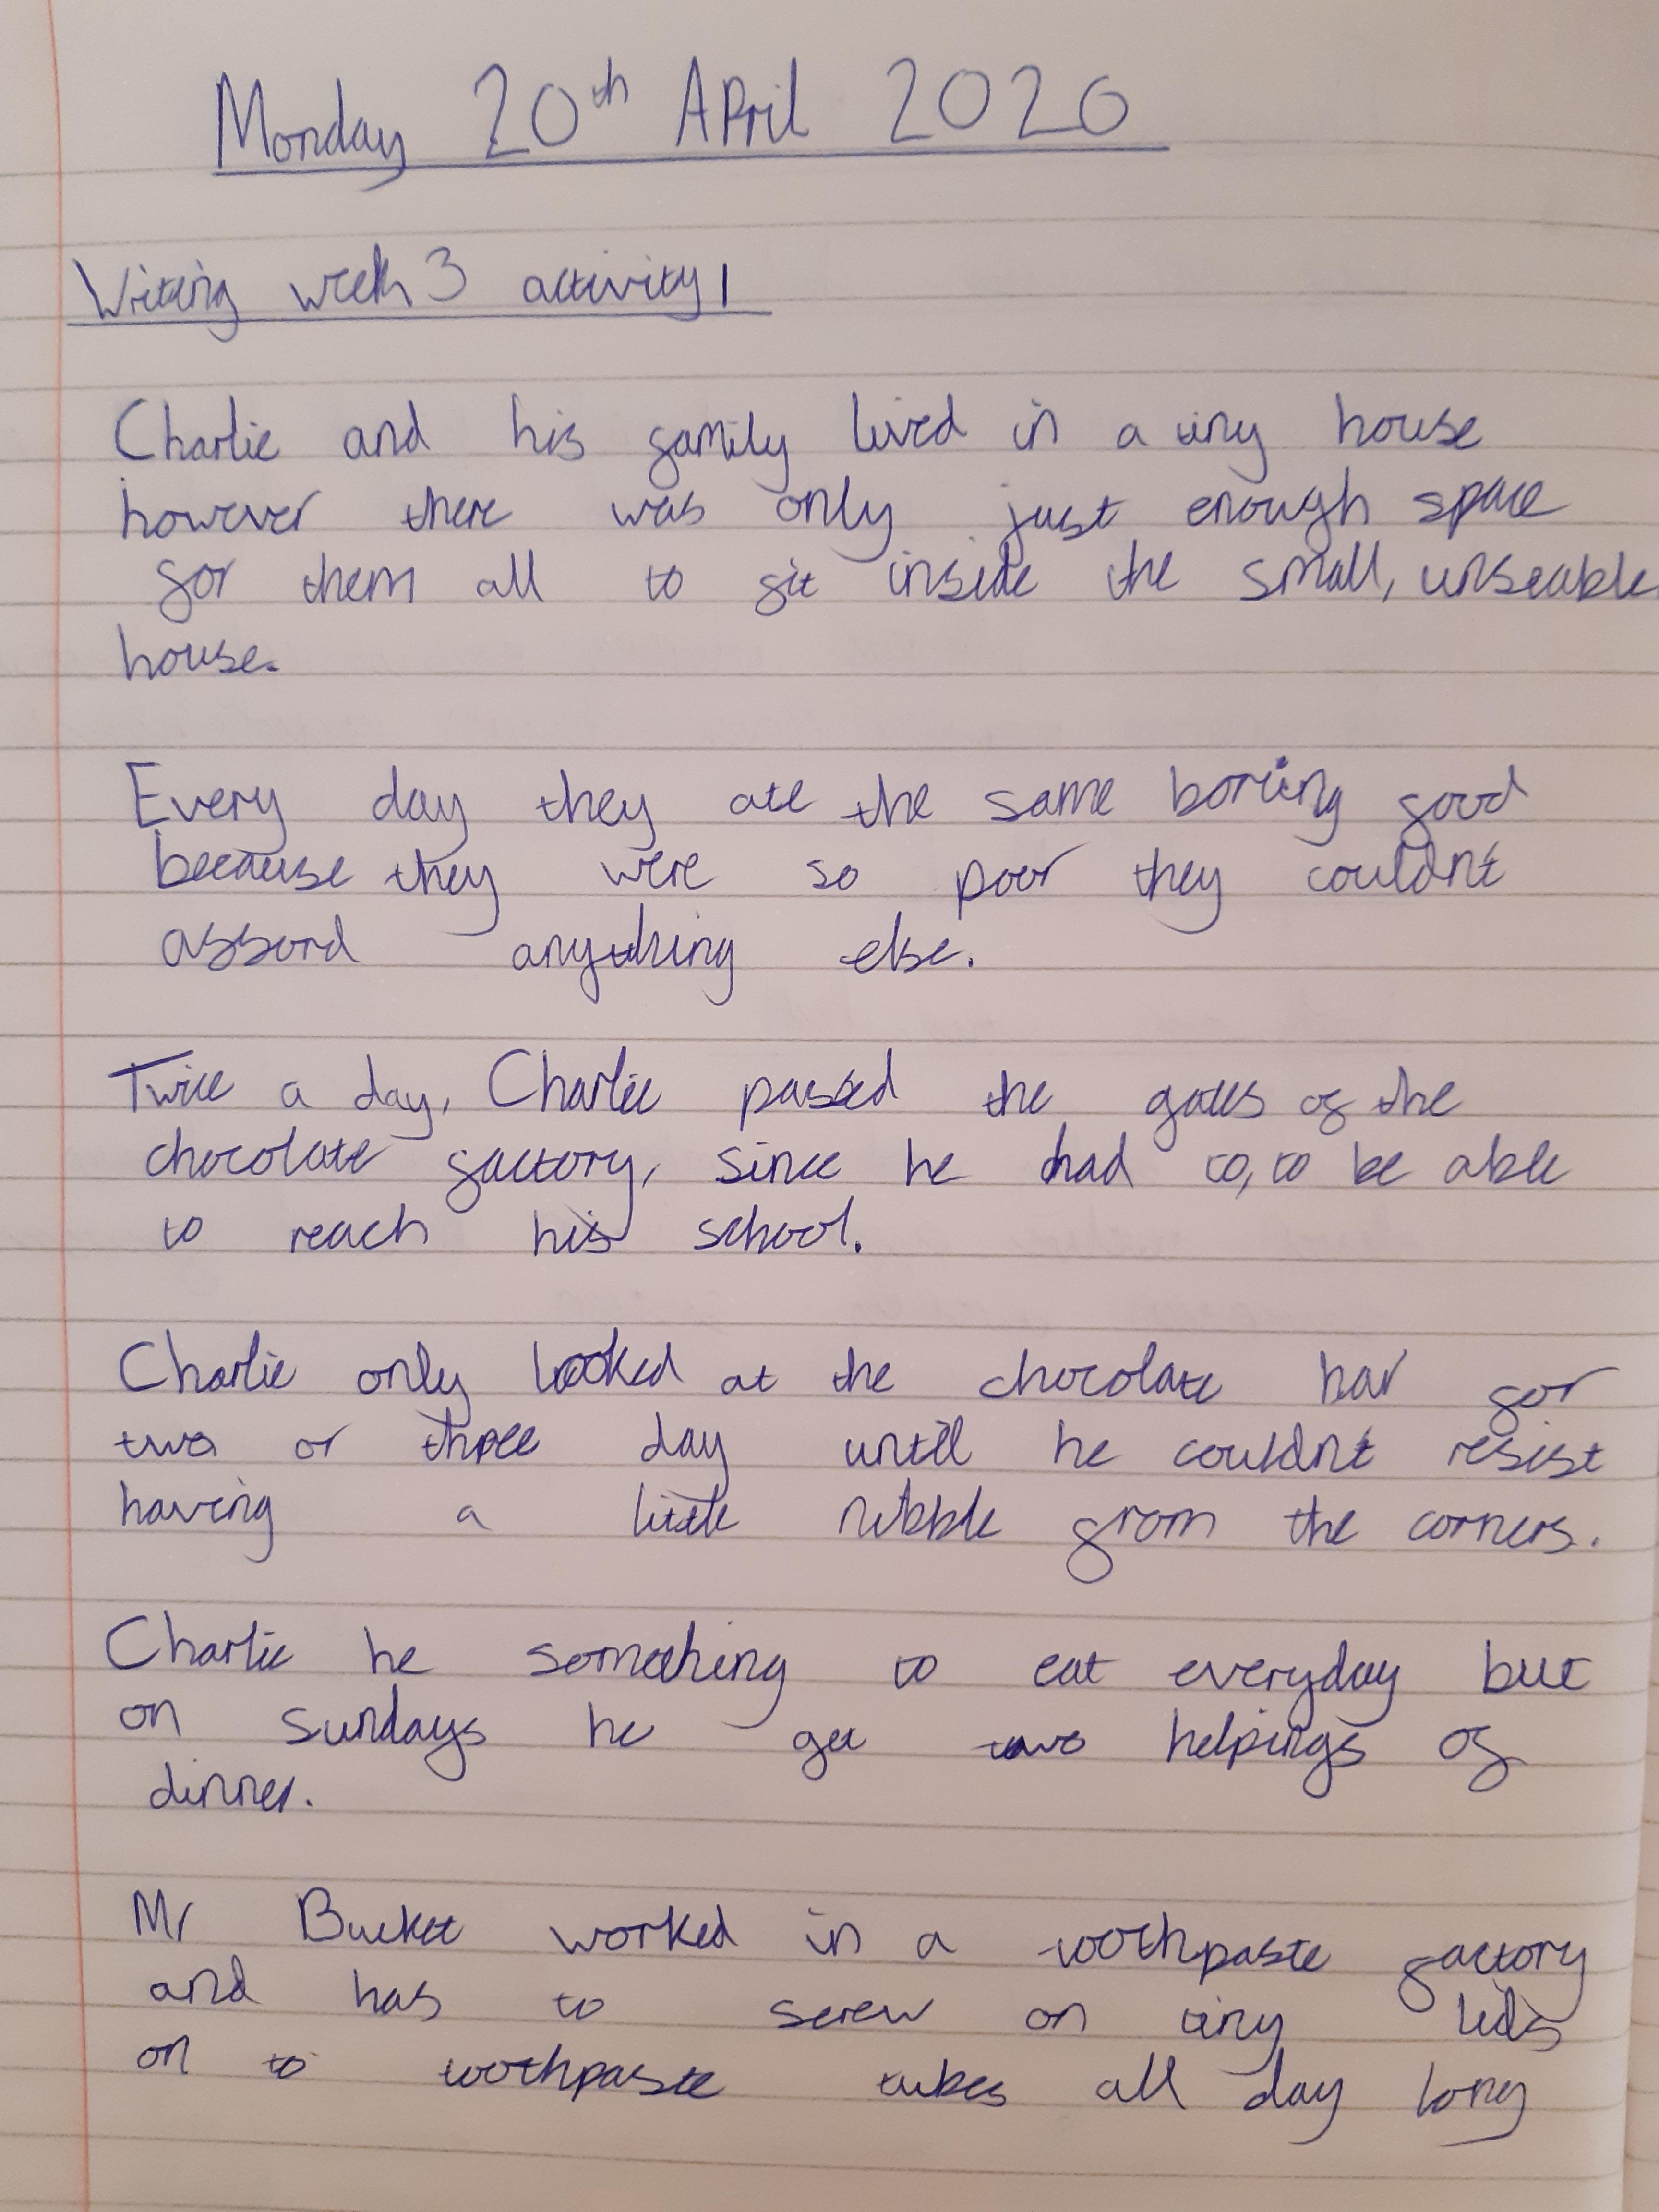 Monday 20th April 2020
Writing week 3 activity 1
Charlie and his family lived in a tiny house
however there was only just enough space
for them all to fit inside the small, unseable
house.
Every day they ate the same boring food
because they were so poor they couldn't
afford anything else.
Twice a day, Charlie passed the gates of the
chocolate factory, since he had to, to be able
to reach his school.
Charlie only looked at the chocolate bar for
two or three day until he couldn't resist
having a little nibble from the corners.
Charlie he something to eat everyday but
on sundays he get two helpings of
dinner.
Mr Bucket worked in a toothpaste factory
and has to screw on tiny lids
on to toothpaste tubes all day long